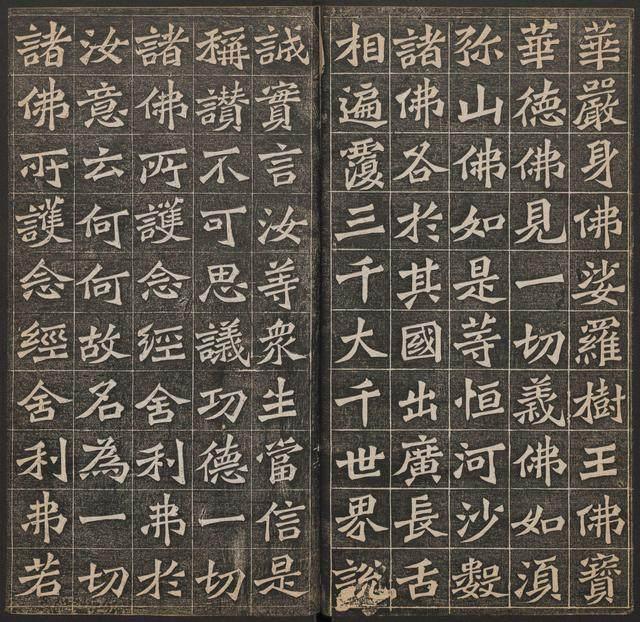 華嚴身佛娑羅樹王佛寶
華德佛見一切義佛如湏
弥山佛如是等恒河沙數
諸佛各於其國出廣長舌
相遍覆三千大千世界說
誠實言汝等衆生當信是
稱讃不可思議功德一切
諸佛所護念經舍利弗於
汝意云何何故名為一切
諸佛所護念經舍利弗若